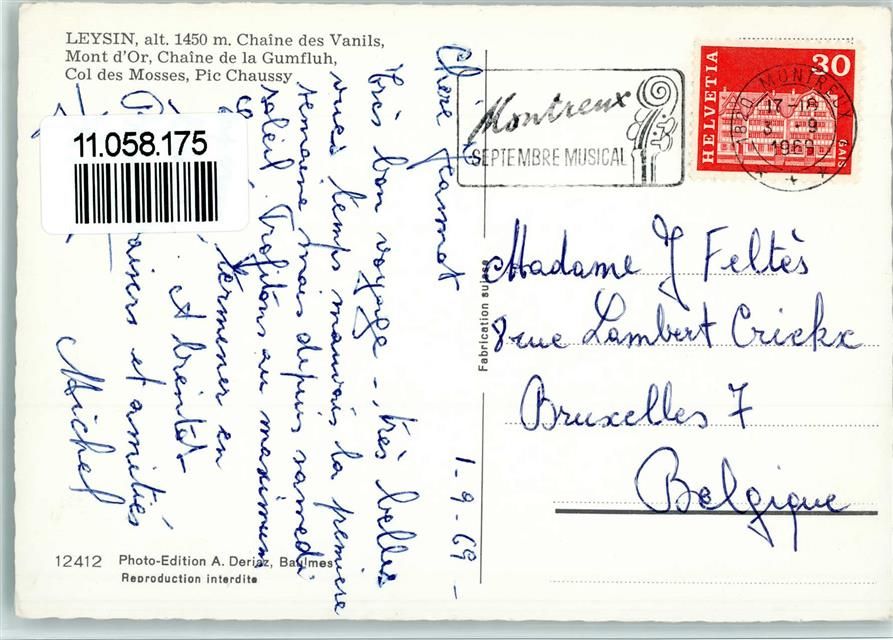 LEYSIN, alt. 1450 m. Chaîne des Vanils,
Mont d'Or, Chaîne de la Gumfluh,
Col des Mosses, Pic Chaussy
11.058.175
Montreux
SEPTEMBRE MUSICAL
HELVETIA
30
GAIS
1820 MONTREUX
17-18
3 -9
1969
1-9-69-
Chère
très bon voyage - très belles
vues temps mauvais la première
semaine mais depuis samedi
soleil. Profitons au maximum
terminer en
A bientôt
baisers et amitiés
Michel
Madame J Feltès
8 rue Lambert Crickx
Bruxelles 7
Belgique
Fabrication suisse
12412 Photo-Edition A. Deriaz, Baulmes
Reproduction interdite